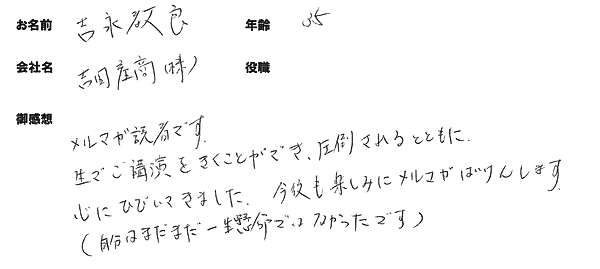 お名前 吉永敬良 年齢 35
会社名 吉田産商(株) 役職
御感想
メルマガ読者です.
生でご講演をきくことができ、圧倒されるとともに.
心にひびいてきました. 今後も楽しみにメルマガはいけんします
(自分はまだまだ一生懸命ではなかったです)